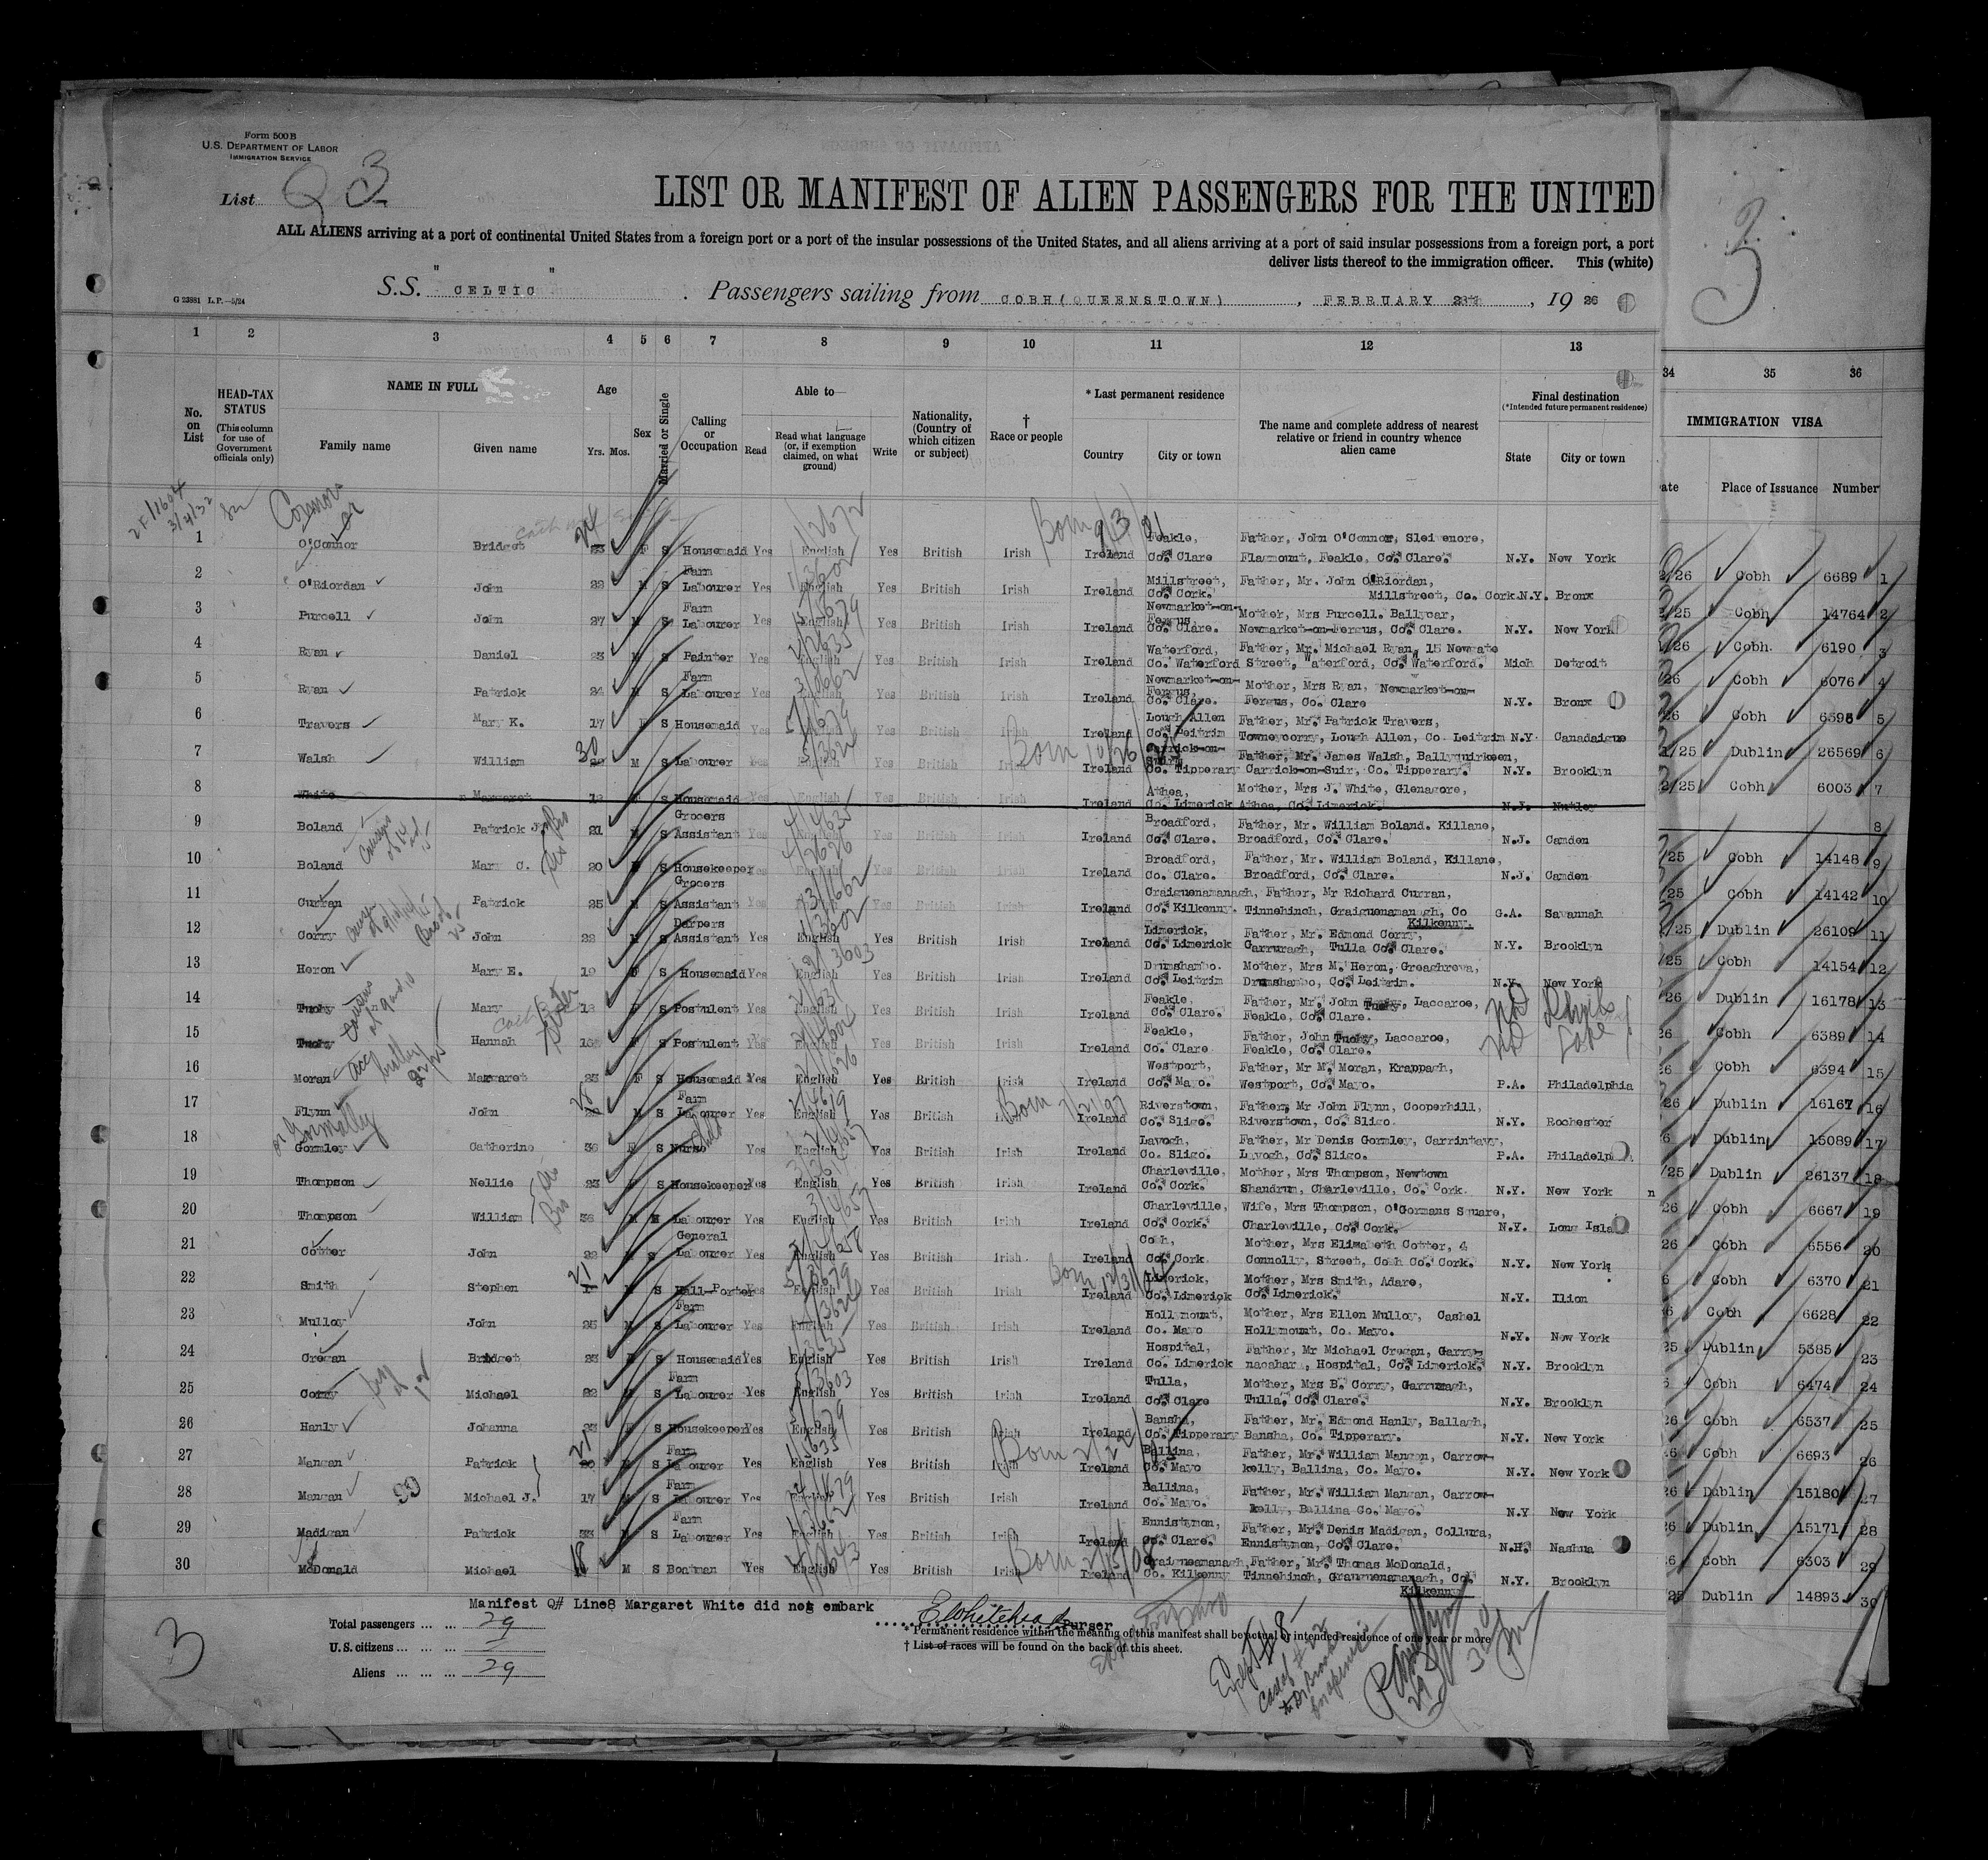 Form 500 B
U.S. DEPARTMENT OF LABOR
IMMIGRATION SERVICE
List Q 3
3
LIST OR MANIFEST OF ALIEN PASSENGERS FOR THE UNITED
ALL ALIENS arriving at a port of continental United States from a foreign port or a port of the insular possessions of the United States, and all aliens arriving at a port of said insular possessions from a foreign port, a port
deliver lists thereof to the immigration officer. This (white)
G 23881 L.P.—5/24
S.S. "CELTIC". Passengers sailing from COBH(QUEENSTOWN), FEBRUARY, 19 26
1 2 3 4 5 6 7 8 9 10 11 12 13 34 35 36
No. on List
HEAD-TAX STATUS (This column for use of Government officials only)
NAME IN FULL
Family name Given name
Age Yrs. Mos.
Sex
Married or Single
Calling or Occupation
Able to—
Read
Read what language (or, if exemption claimed, on what ground)
Write
Nationality, (Country of which citizen or subject)
† Race or people
* Last permanent residence
Country City or town
The name and complete address of nearest relative or friend in country whence alien came
Final destination
(*Intended future permanent residence)
State City or town
IMMIGRATION VISA
Place of Issuance Number
Connors
1 O'Connor Bridget 24 F S Housemaid Yes English Yes British Irish Born 9/3/01 Ireland Feakle, Co. Clare Father, John O'Connor, Sleivenore, Flagmount, Feakle, Co. Clare. N.Y. New York Cobh 6689 1
2 O'Riordan John 22 M S Farm Labourer Yes English Yes British Irish Ireland Millstreet, Co. Cork. Father, Mr. John O'Riordan, Millstreet, Co. Cork. N.Y. Bronx Cobh 14764 2
3 Purcell John 27 M S Farm Labourer Yes English Yes British Irish Ireland Newmarket-on-Fergus Co. Clare. Mother, Mrs Purcell. Ballycar, Newmarket-on-Fergus, Co. Clare. N.Y. New York Cobh 6190 3
4 Ryan Daniel 23 M S Painter Yes English Yes British Irish Ireland Waterford, Co. Waterford Father, Mr. Michael Ryan, 15 Newgate Street, Waterford, Co. Waterford. Mich Detroit Cobh 6076 4
5 Ryan Patrick 24 M S Farm Labourer Yes English Yes British Irish Ireland Newmarket-on-Fergus, Co. Clare. Mother, Mrs Ryan, Newmarket-on-Fergus, Co. Clare N.Y. Bronx Cobh 6398 5
6 Travers Mary K. 17 F S Housemaid Yes English Yes British Irish Ireland Lough Allen Co. Leitrim Father, Mr. Patrick Travers, Towneycorry, Lough Allen, Co. Leitrim N.Y. Canadaigue Dublin 26569 6
7 Walsh William 30 M S Labourer Yes English Yes British Irish Born Ireland Carrick-on-Suir, Co. Tipperary Father, Mr. James Walsh, Ballyquirkeen, Carrick-on-Suir, Co. Tipperary. N.Y. Brooklyn Cobh 6003 7
8 White Margaret F S Housemaid Yes English Yes British Irish Ireland Athea, Co. Limerick Mother, Mrs J. White, Glenagore, Athea, Co. Limerick. N.J. Nutley 8
9 Boland Patrick J. 21 M S Grocers Assistant Yes English Yes British Irish Ireland Broadford, Co. Clare. Father, Mr. William Boland. Killane, Broadford, Co. Clare. N.J. Camden Cobh 14148 9
10 Boland Mary C. 20 F S Housekeeper Yes English Yes British Irish Ireland Broadford, Co. Clare. Father, Mr. William Boland, Killane, Broadford, Co. Clare. N.J. Camden Cobh 14142 10
11 Curran Patrick 25 M S Grocers Assistant Yes English Yes British Irish Ireland Graiguenamanagh, Co. Kilkenny. Father, Mr Richard Curran, Tinnehinch, Graiguenamanagh, Co Kilkenny. G.A. Savannah Dublin 26109 11
12 Corry John 22 M S Drapers Assistant Yes English Yes British Irish Ireland Limerick, Co. Limerick Father, Mr. Edmond Corry, Garruragh, Tulla Co. Clare. N.Y. Brooklyn Cobh 14154 12
13 Heron Mary E. 19 F S Housemaid Yes English Yes British Irish Ireland Drumshambo. Co. Leitrim Mother, Mrs M. Heron, Greaghreva, Drumshambo, Co. Leitrim. N.Y. New York Dublin 16178 13
14 Tuohy Mary 18 F S Postulent Yes English Yes British Irish Ireland Feakle, Co. Clare. Father, Mr. John Tuohy, Laccaroe, Feakle, Co. Clare. ND Devils Lake Cobh 6389 14
15 Tuohy Hannah 16 F S Postulent Yes English Yes British Irish Ireland Feakle, Co. Clare Father, John Tuohy, Laccaroe, Feakle, Co. Clare. ND Cobh 6394 15
16 Moran Margaret 23 F S Housemaid Yes English Yes British Irish Ireland Westport, Co. Mayo. Father, Mr M. Moran, Krappagh, Westport, Co. Mayo. P.A. Philadelphia Dublin 16167 16
17 Flynn John 28 M S Farm Labourer Yes English Yes British Irish Born Ireland Riverstown, Co. Sligo. Father, Mr John Flynn, Cooperhill, Riverstown, Co. Sligo. N.Y. Rochester Dublin 15089 17
or Gormalley
18 Gormley Catherine 36 F S Nurse Child Yes English Yes British Irish Ireland Lavogh, Co. Sligo. Father, Mr Denis Gormley, Carrintavy, Lavogh, Co. Sligo. P.A. Philadelp Dublin 26137 18
19 Thompson Nellie 23 F S Housekeeper Yes English Yes British Irish Ireland Charleville, Co. Cork. Mother, Mrs Thompson, Newtown Shandrum, Charleville, Co. Cork. N.Y. New York Cobh 6667 19
20 Thompson William 36 M M Labourer Yes English Yes British Irish Ireland Charleville, Co. Cork. Wife, Mrs Thompson, O'Gormans Square, Charleville, Co. Cork. N.Y. Long Isla Cobh 6556 20
21 Cotter John 22 M S General Labourer Yes English Yes British Irish Ireland Cobh, Co. Cork Mother, Mrs Elizabeth Cotter, 4 Connolly, Street, Cobh Co. Cork. N.Y. New York Cobh 6370 21
22 Smith Stephen 21 M S Hall-Porter Yes English Yes British Irish Born Ireland Limerick, Co. Limerick Mother, Mrs Smith, Adare, Co. Limerick. N.Y. Ilion Cobh 6628 22
23 Mulloy John 25 M S Farm Labourer Yes English Yes British Irish Ireland Hollymount, Co. Mayo Mother, Mrs Ellen Mulloy, Cashel Hollymount, Co. Mayo. N.Y. New York Dublin 5385 23
24 Cregan Bridget 23 F S Housemaid Yes English Yes British Irish Ireland Hospital, Co. Limerick Father, Mr Michael Cregan, Garrynacahara, Hospital, Co. Limerick. N.Y. Brooklyn Cobh 6474 24
25 Corry Michael 22 M S Farm Labourer Yes English Yes British Irish Ireland Tulla, Co. Clare Mother, Mrs B. Corry, Garruragh, Tulla, Co. Clare. N.Y. Brooklyn Cobh 6537 25
26 Hanly Johanna 23 F S Housekeeper Yes English Yes British Irish Ireland Bansha, Co. Tipperary Father, Mr. Edmond Hanly, Ballagh, Bansha, Co. Tipperary. N.Y. New York Cobh 6693 26
27 Mangan Patrick 21 M S Farm Labourer Yes English Yes British Irish Born Ireland Ballina, Co. Mayo Father, Mr. William Mangan, Carrowkelly, Ballina, Co. Mayo. N.Y. New York Dublin 15180 27
28 Mangan Michael J. 17 M S Farm Labourer Yes English Yes British Irish Ireland Ballina, Co. Mayo. Father, Mr. William Mangan, Carrowkelly, Ballina Co. Mayo. N.Y New York Dublin 15171 28
29 Madigan Patrick 33 M S Farm Labourer Yes English Yes British Irish Ireland Ennistymon, Co. Clare. Father, Mr. Denis Madigan, Collura, Ennistymon, Co. Clare. N.H. Nashua Cobh 6303 29
30 McDonald Michael 18 M S Boatman Yes English Yes British Irish Born 2/15/08 Ireland Graigneamanagh, Co. Kilkenny Father, Mr. Thomas McDonald, Tinnehinch, Graiguenamanagh, Co. Kilkenny N.Y. Brooklyn Dublin 14893 30
Manifest Q# Line8 Margaret White did not embark
Purser
Total passengers 29
U.S. citizens
Aliens 29
* Permanent residence within the meaning of this manifest shall be actual or intended residence of one year or more
† List of races will be found on the back of this sheet.
3